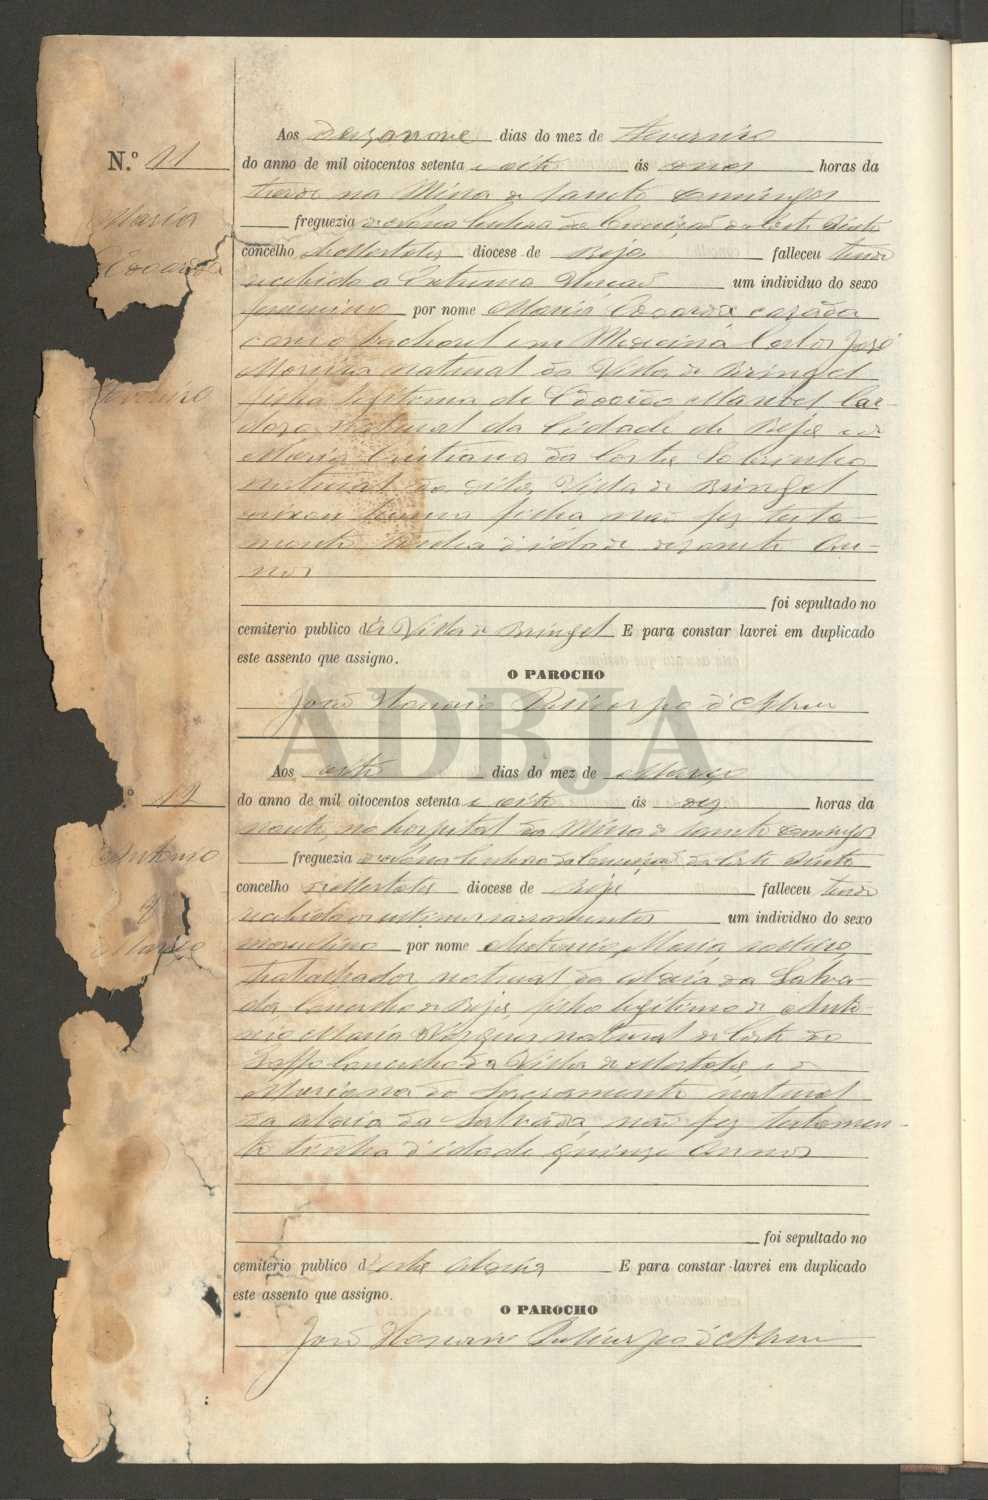 Aos dezanove dias do mez de Fevereiro
N.º 11
do anno de mil oitocentos setenta e oito ás onze horas da
tarde na Mina de Sancto Domingos
Maria
freguezia de Nossa Senhora da Conceição da Corte Pinto
concelho de Mertola diocese de Beja falleceu tendo
Edoarda
recebido a Extrema Unção um individuo do sexo
feminino por nome Maria Edoarda cazada
com o bacharel em Medicina Carlos José
Moreira natural da Villa de Bringel
Fevereiro
filha legitima de Manoel Car-
dozo natural da Cidade de Beja e de
Maria Cristiana da Costa Sobrinho
natural da dita Villa de Bringel
deixou huma filha não fez testa-
mento tinha d'idade dezaoito An-
nos
foi sepultado no
cemiterio publico da Villa de Bringel E para constar lavrei em duplicado
este assento que assigno.
O PAROCHO
João d'Abreu
ADBJA
Aos oito dias do mez de Março
º 12
do anno de mil oitocentos setenta e oito ás dez horas da
noute, no hospital da Mina de Sancto Domingos
Antonio
freguezia de Nossa Senhora da Conceição da Corte Pinto
concelho de Mertola diocese de Beja falleceu tendo
8
recebido os ultimos sacramentos um individuo do sexo
Março
masculino por nome Antonio Maria solteiro
trabalhador natural da aldeia da Salva-
da Concelho de Beja, filho legitimo de Anto-
nio Maria natural de Corte do
Concelho da Villa de Mertola e de
Mariana do Sacramento natural
da aldeia da Salvada, não fez testamen-
to tinha d'idade quinze Annos
foi sepultado no
cemiterio publico d'esta Aldeia E para constar lavrei em duplicado
este assento que assigno.
O PAROCHO
João d'Abreu